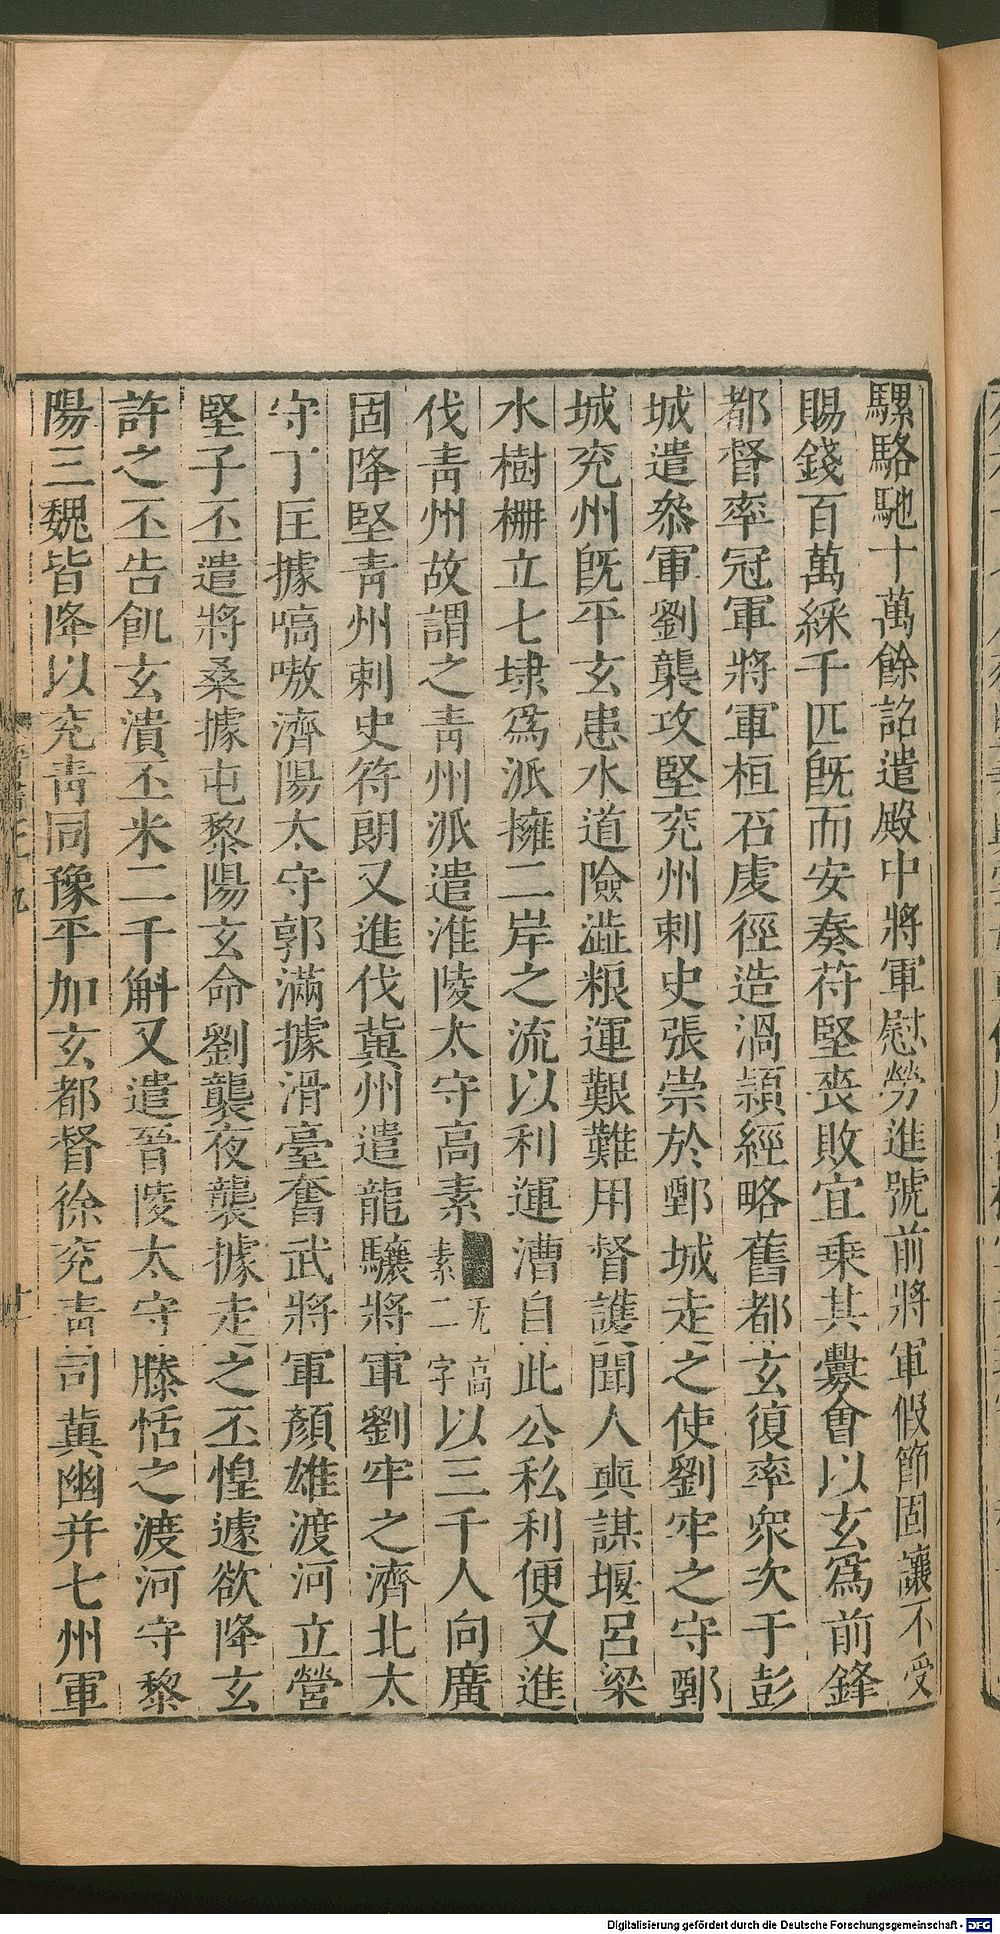 騾駱馳十萬餘詔遣殿中將軍慰勞進號前將軍假節固讓不受
賜錢百萬綵千匹旣而安奏苻堅喪敗宜乗其釁會以玄爲前鋒
都督率冠軍將軍桓石虔徑造渦潁經略舊都玄復率衆次于彭
城遣叅軍劉襲攻堅兖州刺史張崇於鄄城走之使劉牢之守鄄
城兖州旣平玄患水道險澁粮運艱難用督護聞人奭謀堰呂梁
水樹柵立七埭爲派擁二岸之流以利運漕自此公私利便又進
伐青州故謂之青州派遣淮陵太守高素无高素二字以三千人向廣
固降堅青州刺史苻朗又進伐冀州遣龍驤將軍劉牢之濟北太
守丁匡據嗃嗷濟陽太守郭滿據滑臺奮武將軍顏雄渡河立營
堅子丕遣將桑據屯黎陽玄命劉襲夜襲據走之丕惶遽欲降玄
許之丕告飢玄潰丕米二千斛又遣晉陵太守滕恬之渡河守黎
陽三魏皆降以兖青司豫平加玄都督徐兖青司冀幽并七州軍
Digitalisierung gefördert durch die Deutsche Forschungsgemeinschaft - DFG